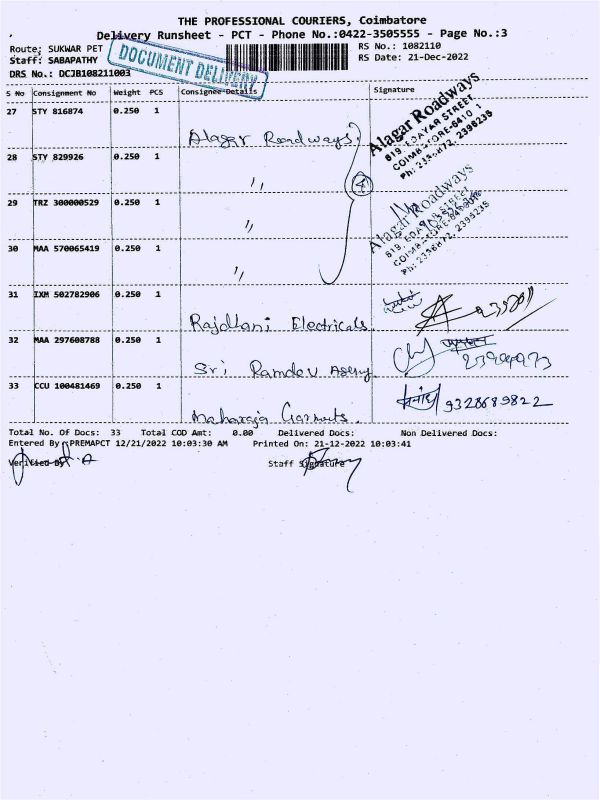 THE PROFESSIONAL COURIERS, Coimbatore
Delivery Runsheet - PCT - Phone No.:0422-3505555 - Page No.:3
Route: SUKWAR PET
RS No.: 1082110
Staff: SABAPATHY
RS Date: 21-Dec-2022
DOCUMENT DELIVERY
DRS No.: DCJB108211003
S No Consignment No Weight PCS Consignee Details Signature
27 STY 816874 0.250 1
Alagar Roadways
28 STY 829926 0.250 1
〃
29 TRZ 300000529 0.250 1
〃
30 MAA 570065419 0.250 1
〃
4
Alagar Roadways
819, EDAYAR STREET
Alagar Roadways
31 IXM 502782906 0.250 1
Rajdhani Electricals
32 MAA 297608788 0.250 1
Sri Ramdev
33 CCU 100481469 0.250 1
9328689822
Maharaja Garments.
Total No. Of Docs: 33 Total COD Amt: 0.00 Delivered Docs: Non Delivered Docs:
Entered By :PREMAPCT 12/21/2022 10:03:30 AM Printed On: 21-12-2022 10:03:41
Verified By Staff Signature